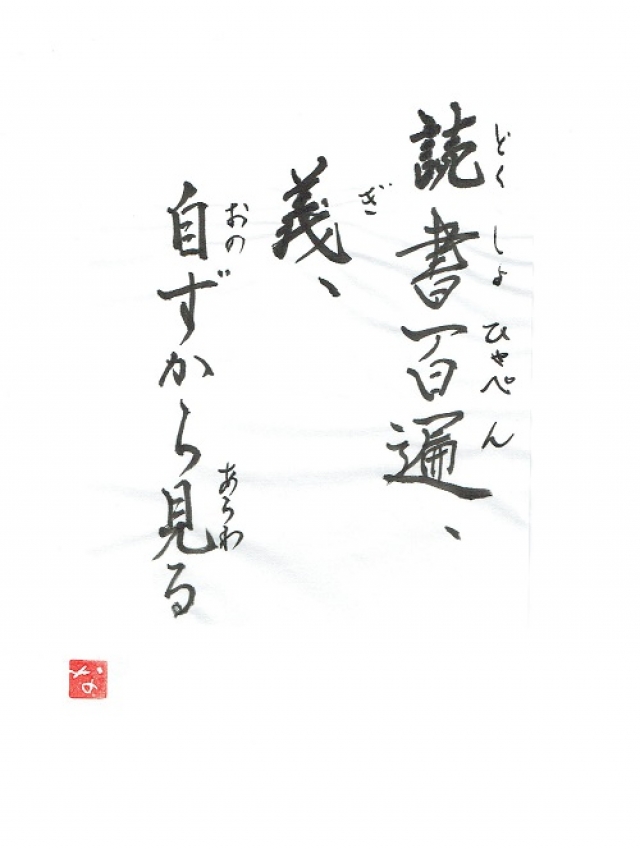 読書百遍、
どくしょひゃぺん
義、
ぎ
自ずから見る
おの
あらわ
な